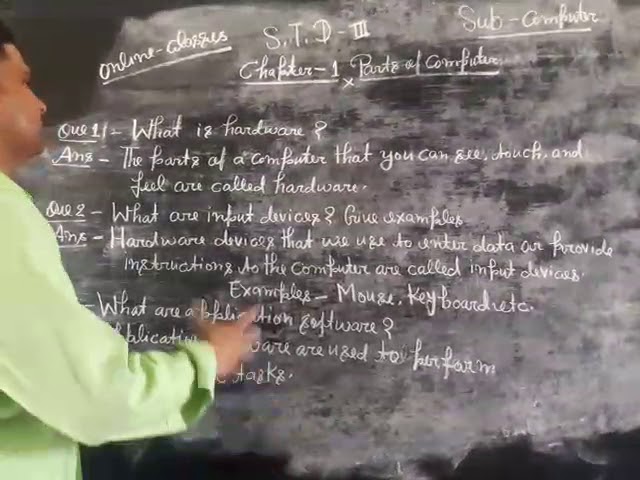 Online-classes
S.T.D-III
Sub-Computer
Chapter-1 × Parts of Computer
Que 1/- What is hardware?
Ans - The parts of a computer that you can see, touch, and
feel are called hardware.
Que 2 - What are input devices? Give examples
Ans - Hardware devices that we use to enter data or provide
instructions to the computer are called input devices.
Examples - Mouse, Keyboard, etc.
- What are application software?
are used to perform
tasks.